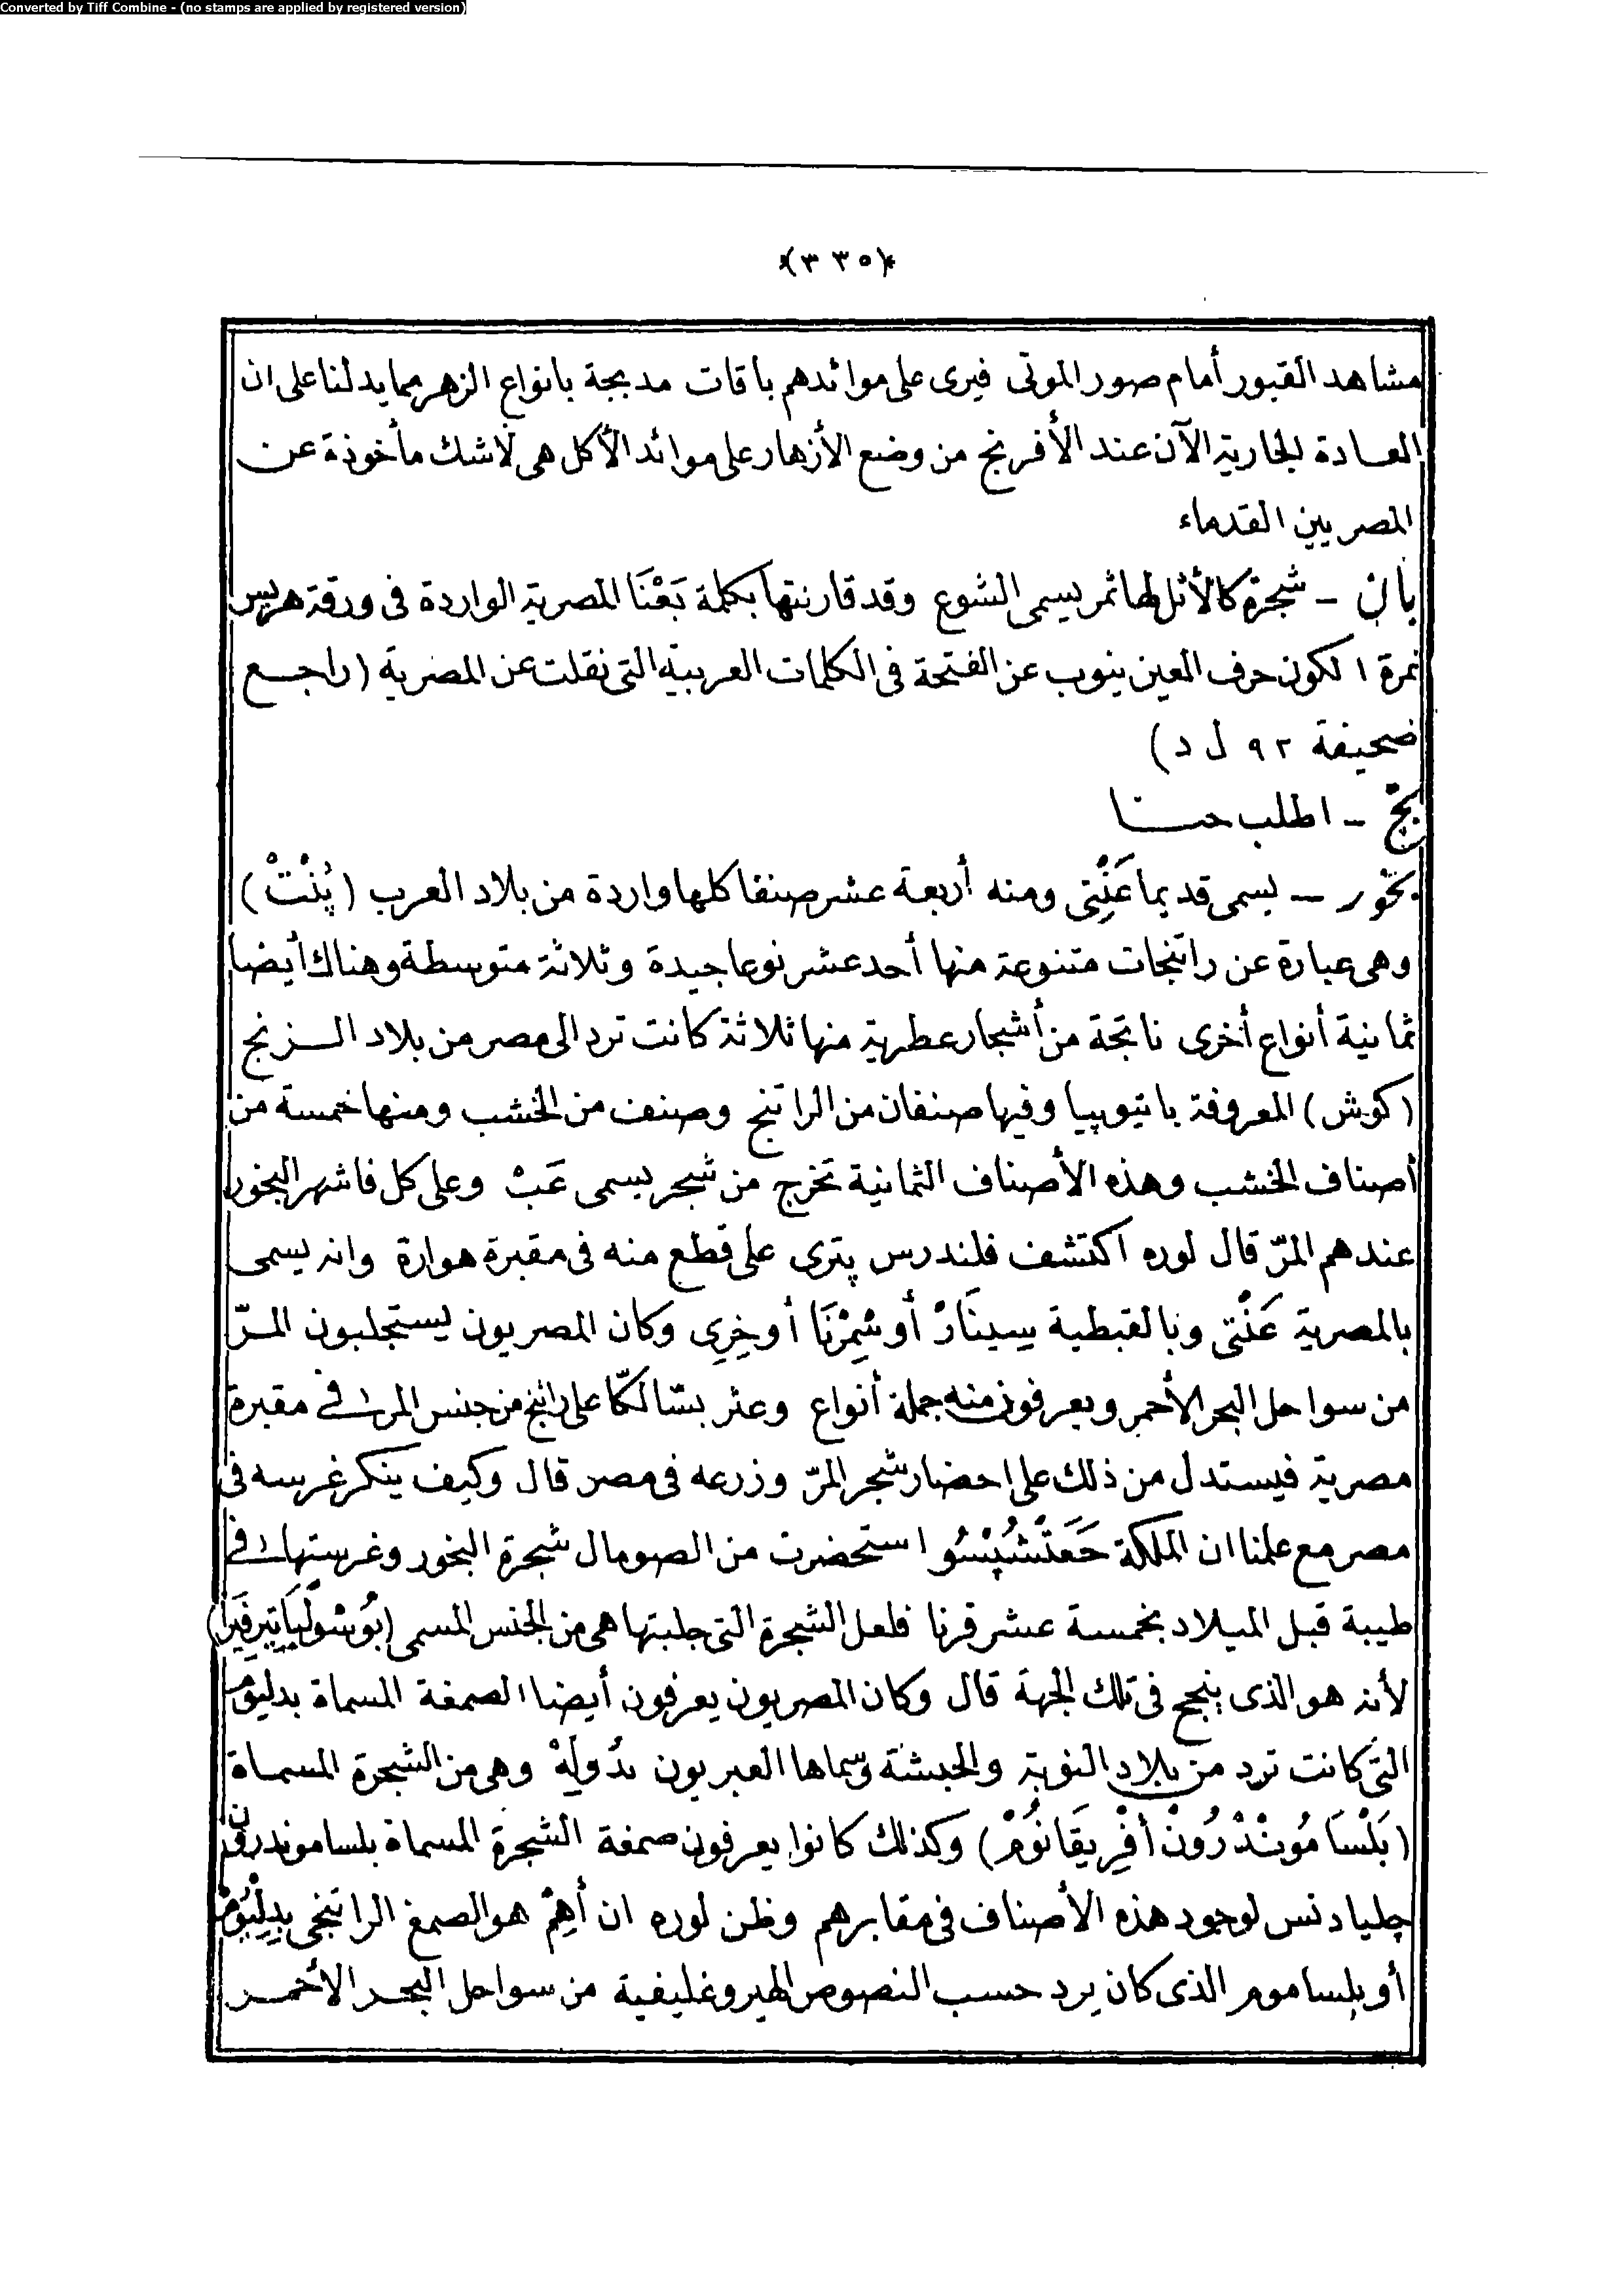 Converted by Tiff Combine - (no stamps are applied by registered version)
*(٣٣٥)*
مشاهد القبور أمام صور الموتى فيرى على موائدهم باقات مدبجة بانواع الزهر مما يدلنا على ان
العادة الجارية الآن عند الأفرنج من وضع الأزهار على موائد الأكل هى لاشك مأخوذة عن
المصريين القدماء
بان – شجرة كالأثل لها ثمر يسمى الشوع وقد قارنتها بكلمة بَعْنَا المصرية الواردة فى ورقة هريس
نمرة ١ لكون حرف العين ينوب عن الفتحة فى الكلمات العربية التى نقلت عن المصرية (راجع
صحيفة ٩٢ ل د)
بخّ – اطلب حنا
بخور – يسمى قديما عَنْتِى ومنه أربعة عشر صنفا كلها واردة من بلاد العرب (پُنْتْ)
وهى عبارة عن راتنجات متنوعة منها أحد عشر نوعا جيدة وثلاثة متوسطة وهناك أيضا
ثمانية أنواع أخرى ناتجة من أشجار عطرية منها ثلاثة كانت ترد الى مصر من بلاد الزنج
(كوش) المعروفة باتيوپيا وفيها صنفان من الراتنج وصنف من الخشب ومنها خمسة من
أصناف الخشب وهذه الأصناف الثمانية تخرج من شجر يسمى عَبْ وعلى كل فاشهر البخور
عندهم المرّ قال لوره اكتشف فلندرس پترى على قطع منه فى مقبرة هوارة وانه يسمى
بالمصرية عَنْتِى وبالقبطية سِينَارْ أو شِمِرْنَا أو خِرِى وكان المصريون يستجلبون المرّ
من سواحل البحر الأحمر ويعرفون منه جملة أنواع وعثر بسّالكّا على راتنج من جنس المر فى مقبرة
مصرية فيستدل من ذلك على احضار شجر المرّ وزرعه فى مصر قال وكيف ينكر غرسه فى
مصر مع علمنا ان الملكة حَعَتْشُپْسُو استحضرت من الصومال شجرة البخور وغرستها فى
طيبة قبل الميلاد بخمسة عشر قرنا فلعل الشجرة التى جلبتها هى من الجنس المسمى
لأنه هو الذى ينجح فى تلك الجهة قال وكان المصريون يعرفون أيضا الصمغة المسماة بدليوم
التى كانت ترد من بلاد النوبة والحبشة وسماها العبريون بدُولَهْ وهى من الشجرة المسماة
(بَلْسَامُونْدْرُونْ أفْرِيقَانُومْ) وكذلك كانوا يعرفون صمغة الشجرة المسماة بلساموندرون
جليادنس لوجود هذه الأصناف فى مقابرهم وظن لوره ان أهِمْ هو الصمغ الراتنجى بِدِلْيُومْ
أو بلساموم الذى كان يرد حسب النصوص الهيروغليفية من سواحل البحر الأحمر